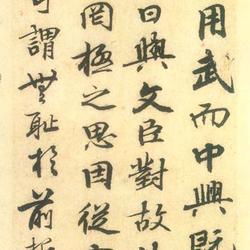 用武而中興既
日與文臣對故
罔極之思因從
可謂無恥於前